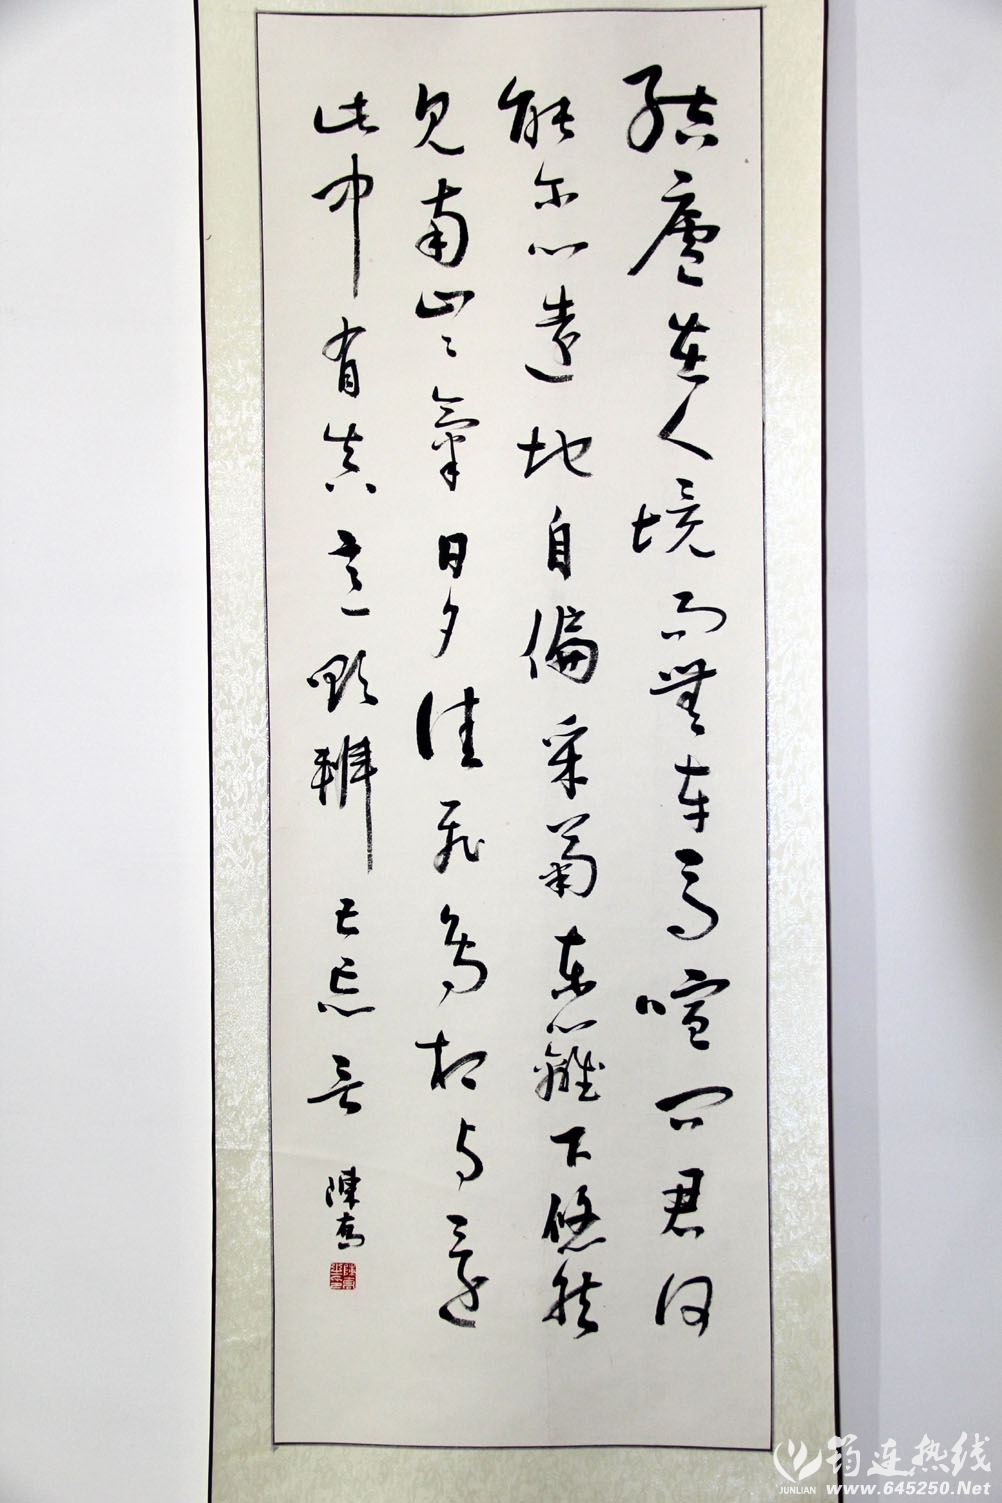 結廬在人境而無車馬喧問君何
能尔心遠地自偏采菊東籬下悠然
見南山〻氣日夕佳飛鳥相与還
此中有真意欲辨已忘言
陳
筠连热线
JUNLIAN www.645250.Net